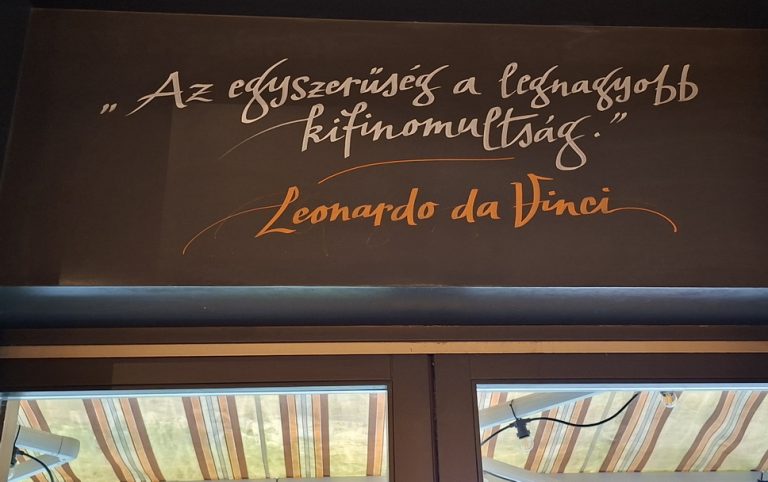 „Az egyszerűség a legnagyobb
kifinomultság.”
Leonardo da Vinci